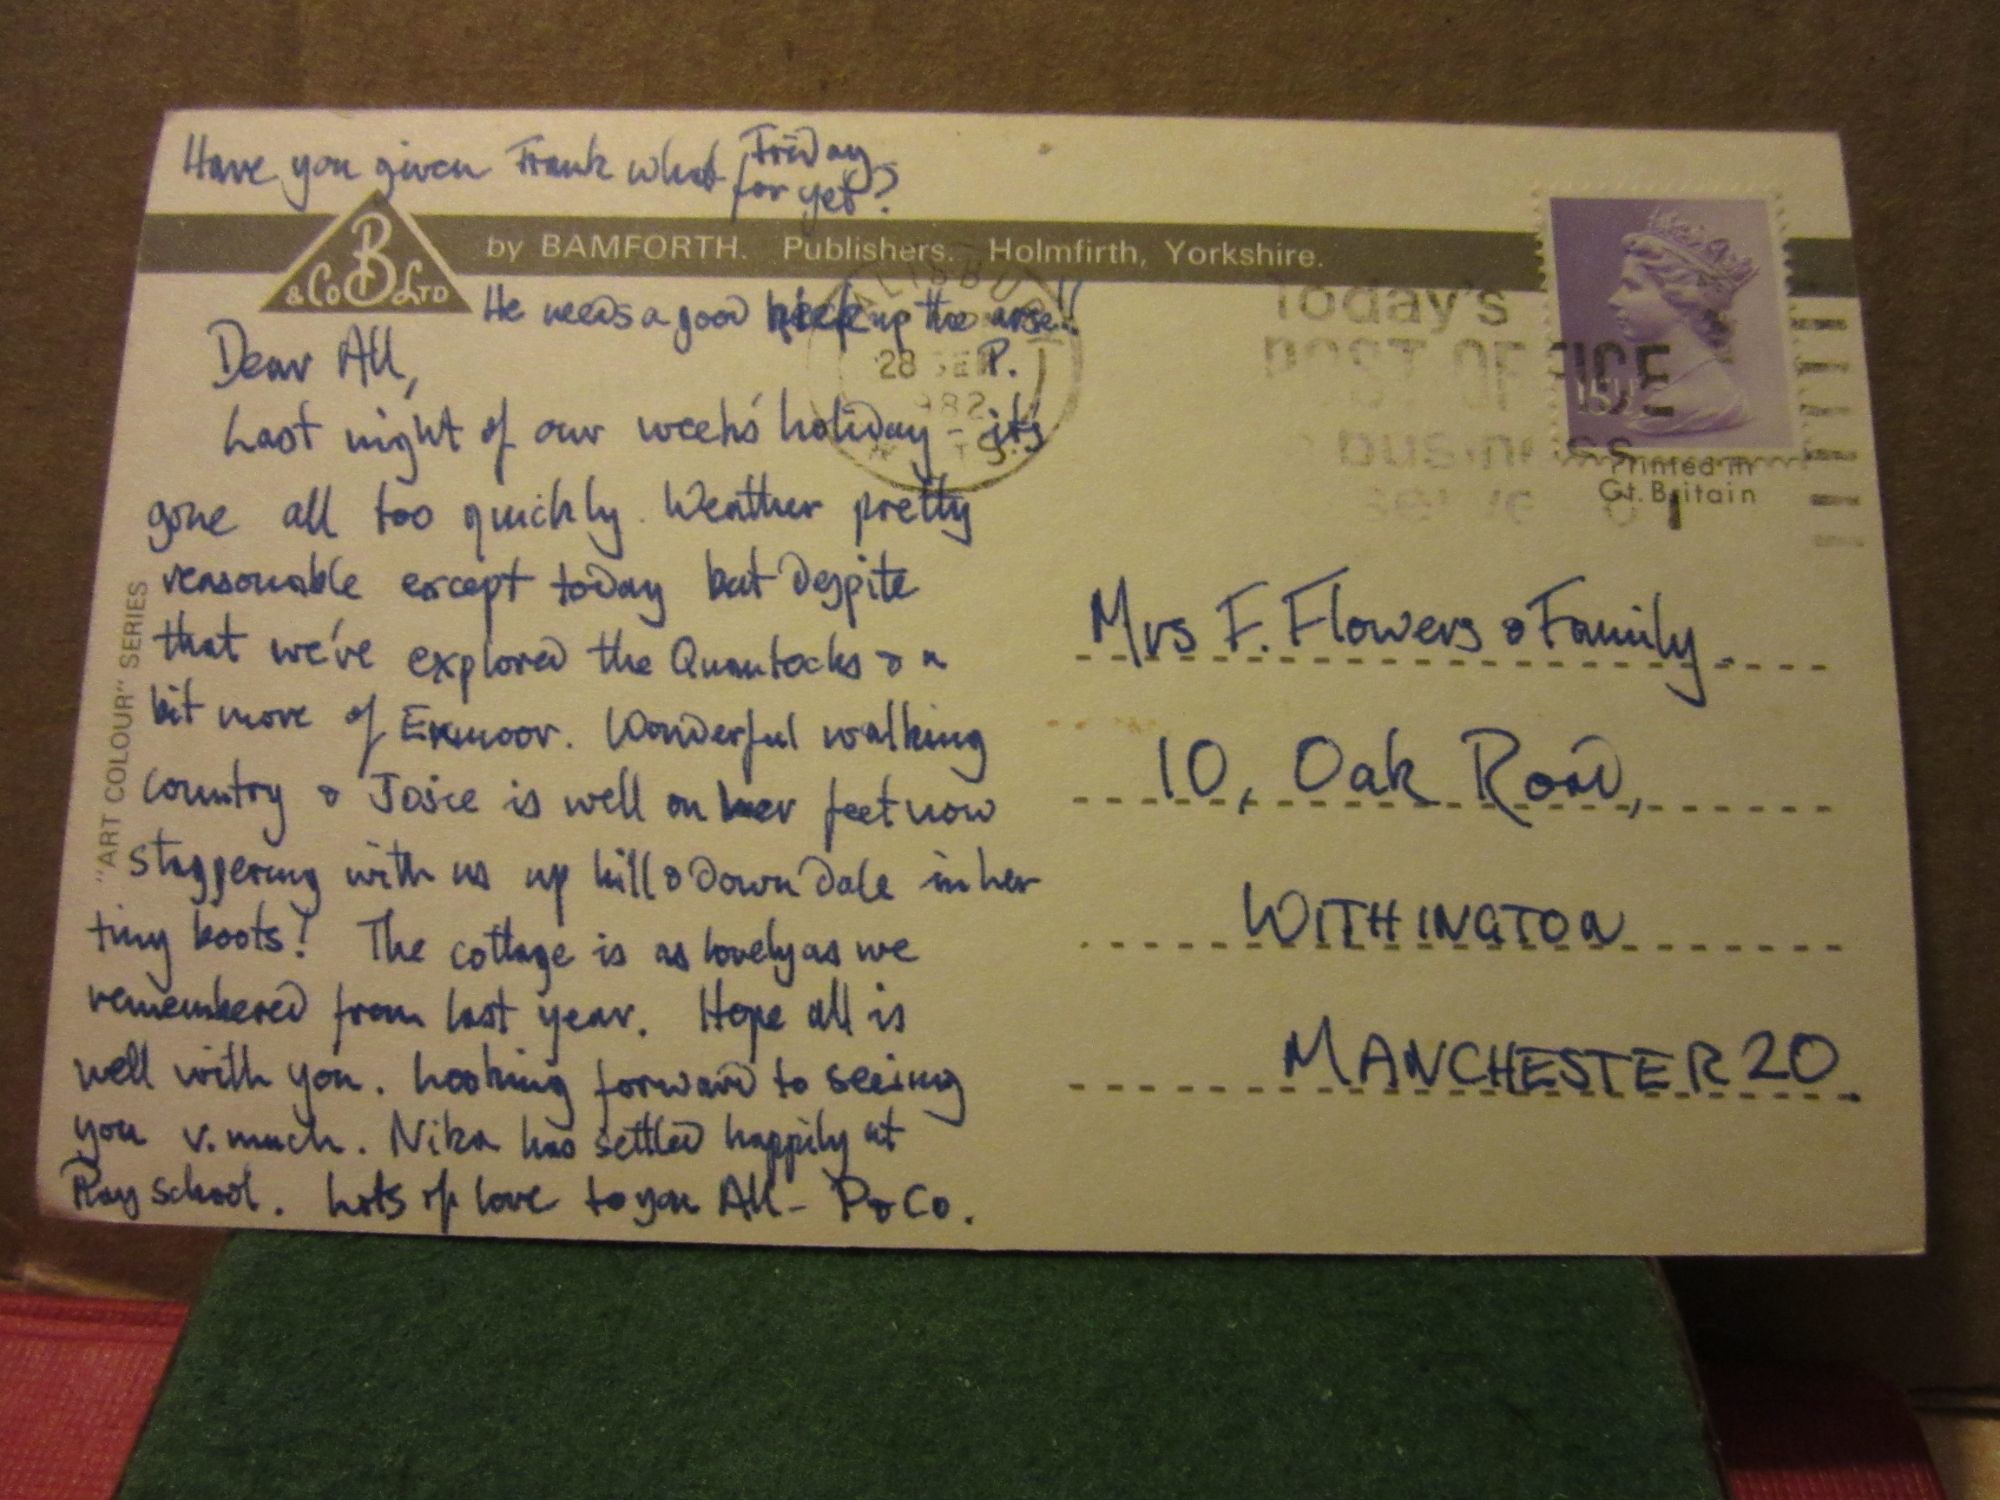 Have you given Frank what Friday
for yet?
B
& Co Ltd
by BAMFORTH. Publishers. Holmfirth, Yorkshire.
He needs a good kick up the arse!!
P.
Dear All,
Last night of our weeks' holiday - it's
gone all too quickly. Weather pretty
reasonable except today but despite
that we've explored the Quantocks & a
bit more of Exmoor. Wonderful walking
country & Josie is well on her feet now
staggering with us up hill & down dale in her
tiny boots! The cottage is as lovely as we
remembered from last year. Hope all is
well with you. Looking forward to seeing
you v. much. Nika has settled happily at
school. Lots of love to you All - P & Co.
"ART COLOUR" SERIES
28 SEP
1982
Today's
POST OFFICE
business
Printed in
Gt. Britain
Mrs F. Flowers & Family.
10, Oak Road,
WITHINGTON
MANCHESTER 20.